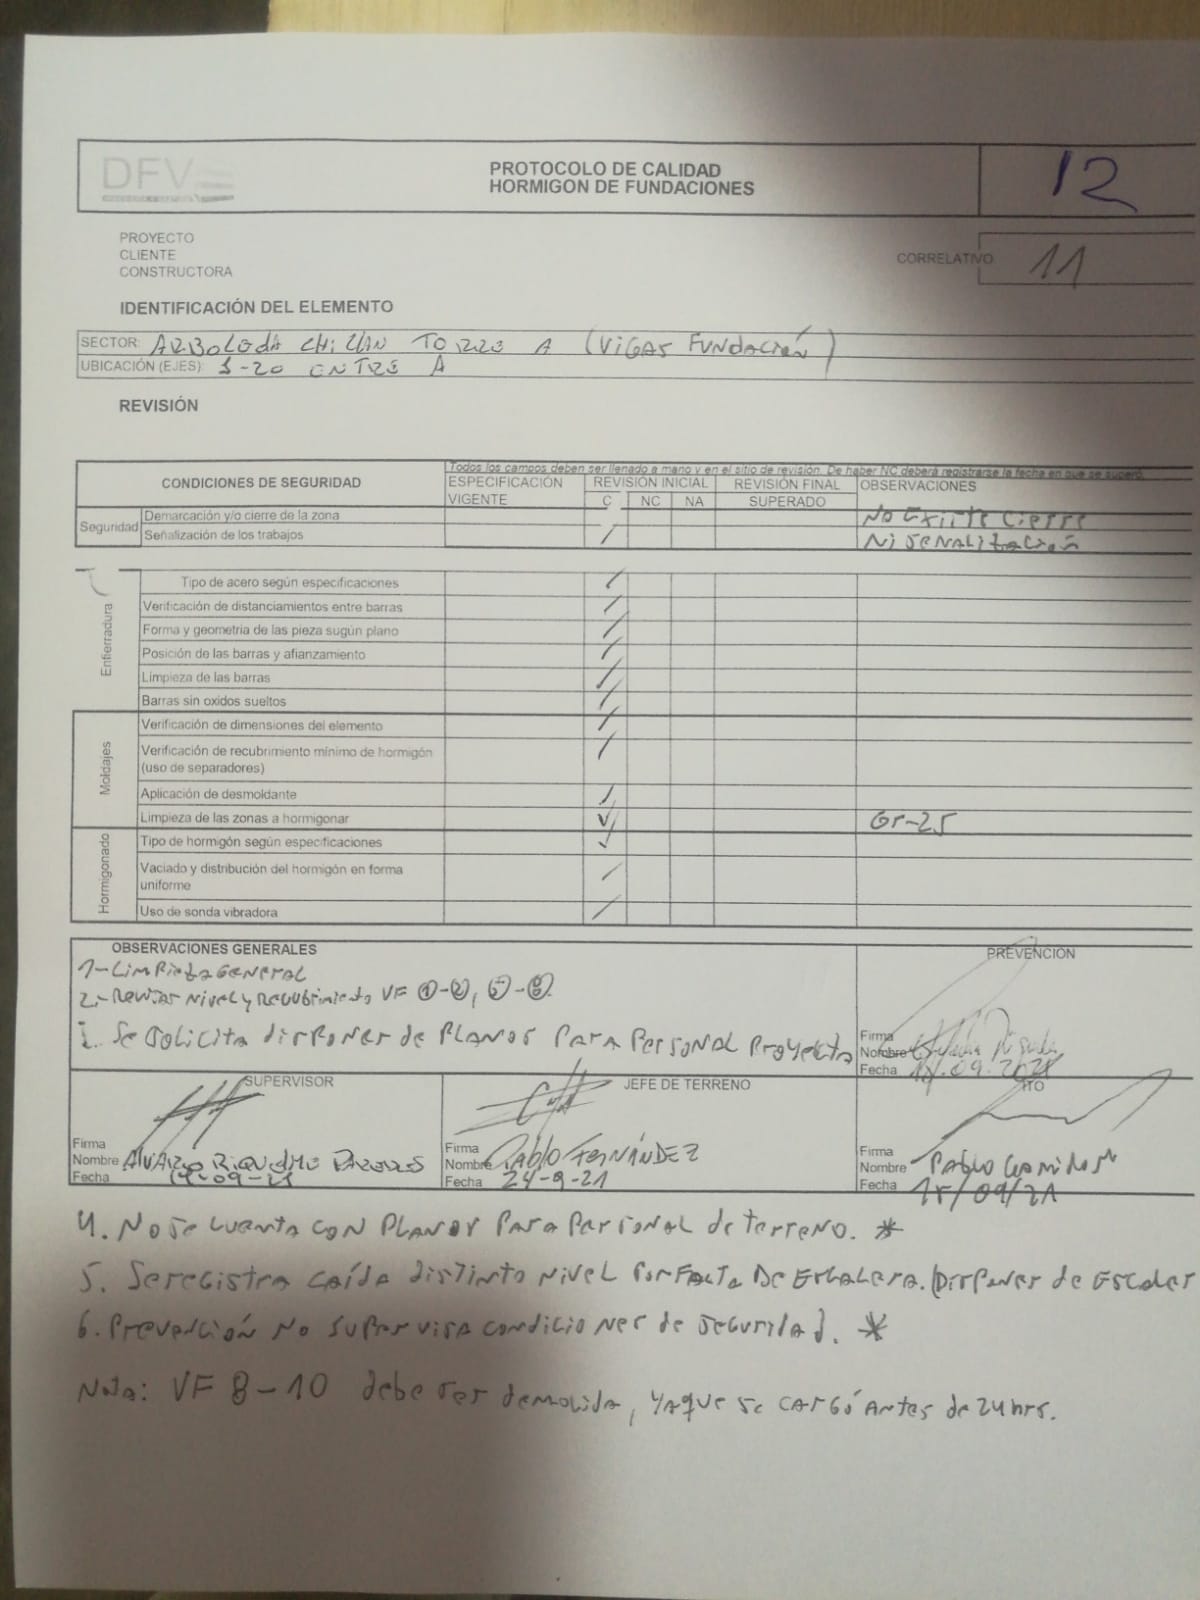 DFV
PROTOCOLO DE CALIDAD
HORMIGON DE FUNDACIONES
12
PROYECTO
CLIENTE
CONSTRUCTORA
CORRELATIVO 11
IDENTIFICACIÓN DEL ELEMENTO
SECTOR: ARBOLEDA CHILLAN TORRE A (VIGAS FUNDACIÓN)
UBICACIÓN (EJES): 1-20 ENTRE A
REVISIÓN
Todos los campos deben ser llenado a mano y en el sitio de revisión. De haber NC deberá registrarse la fecha en que se superó.
CONDICIONES DE SEGURIDAD ESPECIFICACIÓN VIGENTE REVISIÓN INICIAL REVISIÓN FINAL OBSERVACIONES
C NC NA SUPERADO
Seguridad
Demarcación y/o cierre de la zona NO EXISTE CIERRE
Señalización de los trabajos / NI SENALIZACIÓN
Enfierradura
Tipo de acero según especificaciones /
Verificación de distanciamientos entre barras /
Forma y geometria de las pieza sugún plano /
Posición de las barras y afianzamiento /
Limpieza de las barras /
Barras sin oxidos sueltos /
Moldajes
Verificación de dimensiones del elemento /
Verificación de recubrimiento mínimo de hormigón /
(uso de separadores)
Aplicación de desmoldante ✓
Limpieza de las zonas a hormigonar ✓ G-25
Hormigonado
Tipo de hormigón según especificaciones ✓
Vaciado y distribución del hormigón en forma /
uniforme
Uso de sonda vibradora /
OBSERVACIONES GENERALES
1-LIMPIEZA GENERAL
2.- REVISAR NIVEL Y RECUBRIMIENTO VF ①-②,
Se SOLICITA DISPONER de PLANOS PARA PERSONAL PROYECTO
PREVENCIÓN
Firma
Nombre
Fecha .09.2021
SUPERVISOR
Firma
Nombre ALVARO RIQUELME
Fecha 14-09-21
JEFE DE TERRENO
Firma
Nombre PABLO FERNÁNDEZ
Fecha 24-9-21
ITO
Firma
Nombre PABLO
Fecha 15/09/21
4. NO SE CUENTA CON PLANOS PARA PERSONAL de terreno. *
5. Se registra CAÍDA DISTINTO NIVEL POR FALTA DE ESCALERA. (DISPONER de ESCALER
6. PREVENCIÓN NO SUPERVISA CONDICIONES de SEGURIDAD. *
Nota: VF 8-10 debe ser demolida, YAQUE SE CARGÓ ANTES de 24 hrs.